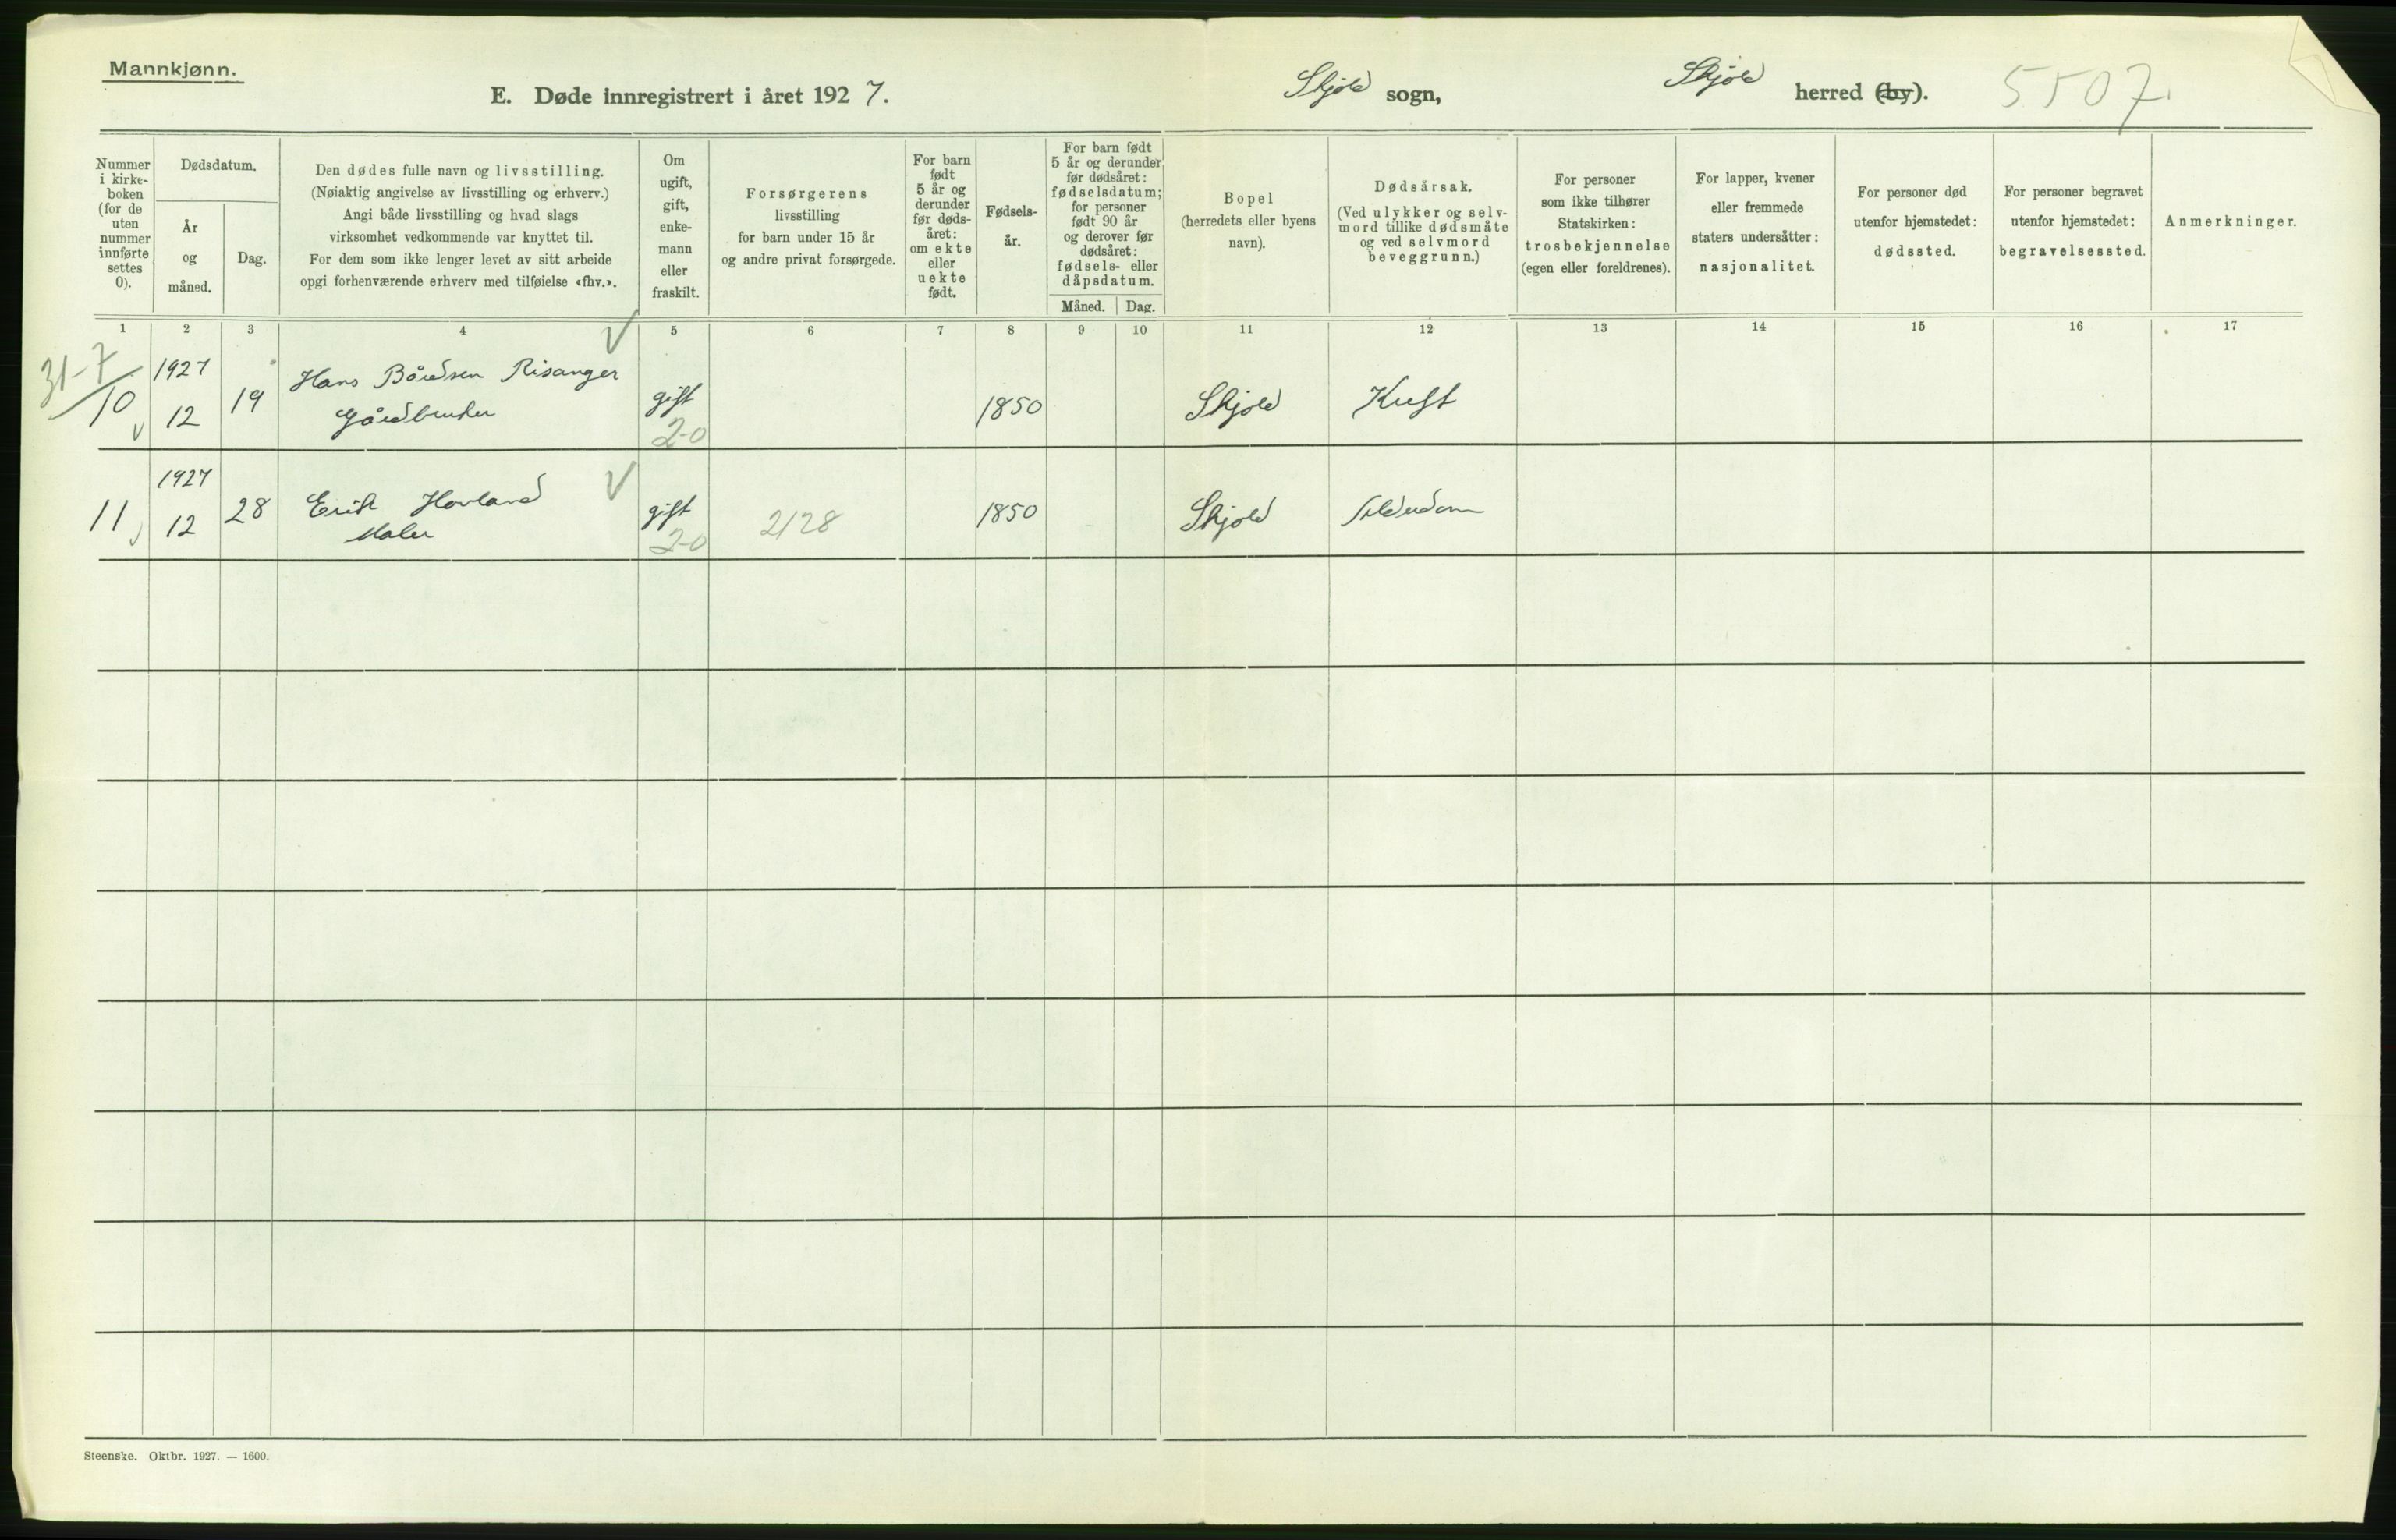 Mannkjønn.
E. Døde innregistrert i året 1927.
Skjold sogn,
Skjold herred (by).
5507.
Nummer
i kirke-
boken
(for de
uten
nummer
innførte
settes
0).
Dødsdatum.
År
og
måned.
Dag.
Den dødes fulle navn og livsstilling.
(Nøiaktig angivelse av livsstilling og erhverv.)
Angi både livsstilling og hvad slags
virksomhet vedkommende var knyttet til.
For dem som ikke lenger levet av sitt arbeide
opgi forhenværende erhverv med tilføielse «fhv.».
Om
ugift,
gift,
enke-
mann
eller
fraskilt.
Forsørgerens
livsstilling
for barn under 15 år
og andre privat forsørgede.
For barn
født
5 år og
derunder
før døds-
året:
om ekte
eller
uekte
født.
Fødsels-
år.
For barn født
5 år og derunder
før dødsåret:
fødselsdatum;
for personer
født 90 år
og derover før
dødsåret:
fødsels- eller
dåpsdatum.
Måned.
Dag.
Bopel
(herredets eller byens
navn).
Dødsårsak.
(Ved ulykker og selv-
mord tillike dødsmåte
og ved selvmord
beveggrunn.)
For personer
som ikke tilhører
Statskirken:
trosbekjennelse
(egen eller foreldrenes).
For lapper, kvener
eller fremmede
staters undersåtter:
nasjonalitet.
For personer død
utenfor hjemstedet:
dødssted.
For personer begravet
utenfor hjemstedet:
begravelsessted.
Anmerkninger.
1 2 3 4 5 6 7 8 9 10 11 12 13 14 15 16 17
31-7
10
1927
12
19
Hans Bårdsen Risanger
Gårdbruker
gift
2-0
1850
Skjold
Kreft
11
1927
12
28
Erik Hovland
Maler
gift
2-0
2128
1850
Skjold
Alderdom
Steenske. Oktbr. 1927. — 1600.